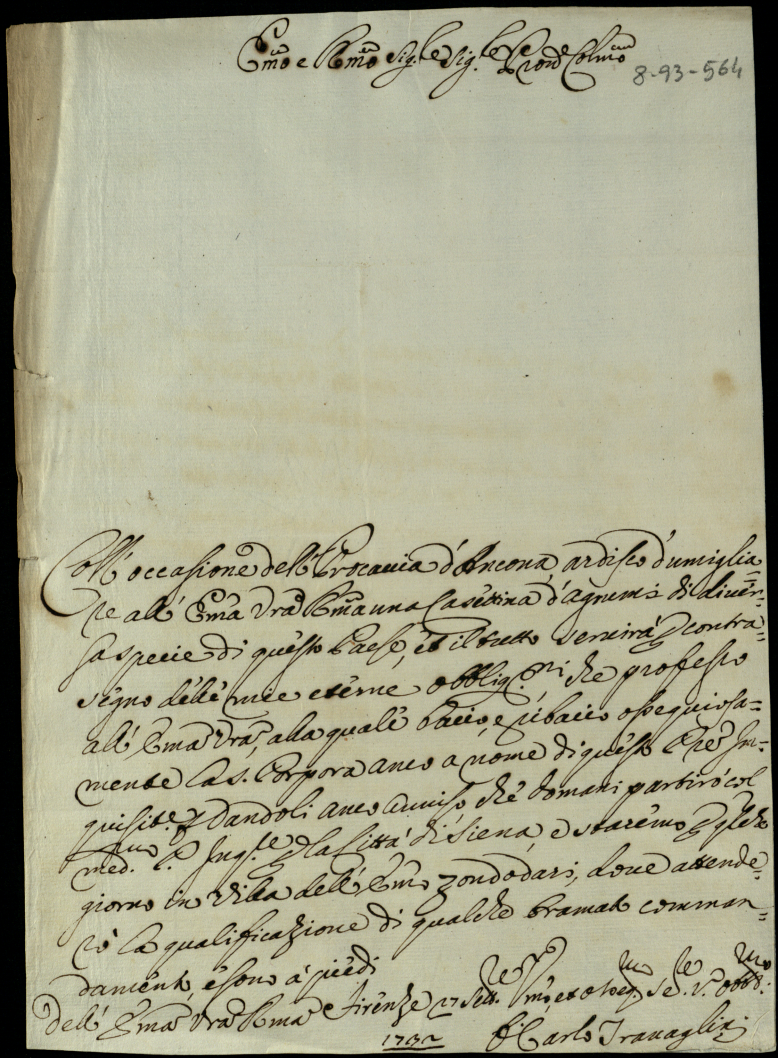 Em̃o e Rm̃o Sig.re Sig.re e Prone Colmo
8-93-564
Coll'occasione dell' Procaccia d'Ancona, ardisco d'umiglia=
re all' Em̃a Vrã Rm̃a una Casettina d'agrumi di diver=
sa specie di questo Paese, et il tutto servirà p contra=
segno delle mie eterne obblig.ni che professo
all' Em̃a Vrã, alla quale bacio, e ribacio ossequiosa=
mente la s. Porpora anco a nome di questo Pre In=
quisit.e, dandoli anco avviso che domani partirò col
med.mo P. Inq.re p la Città di Siena, e staremo p qlche
giorno in Villa dell' Em̃o Zondodari, dove attende=
rò la qualificazione di qualche bramato comman=
damento, e sono à piedi
dell' Em̃a Vrã Rm̃a Firenze 27 Sett.re
1732
Um̃o, et Osseq.mo Se.re V.o Obb.mo
F. Carlo Travaglini